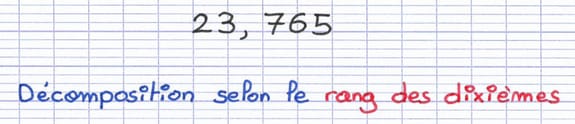 23, 765
Décomposition selon le rang des dixièmes